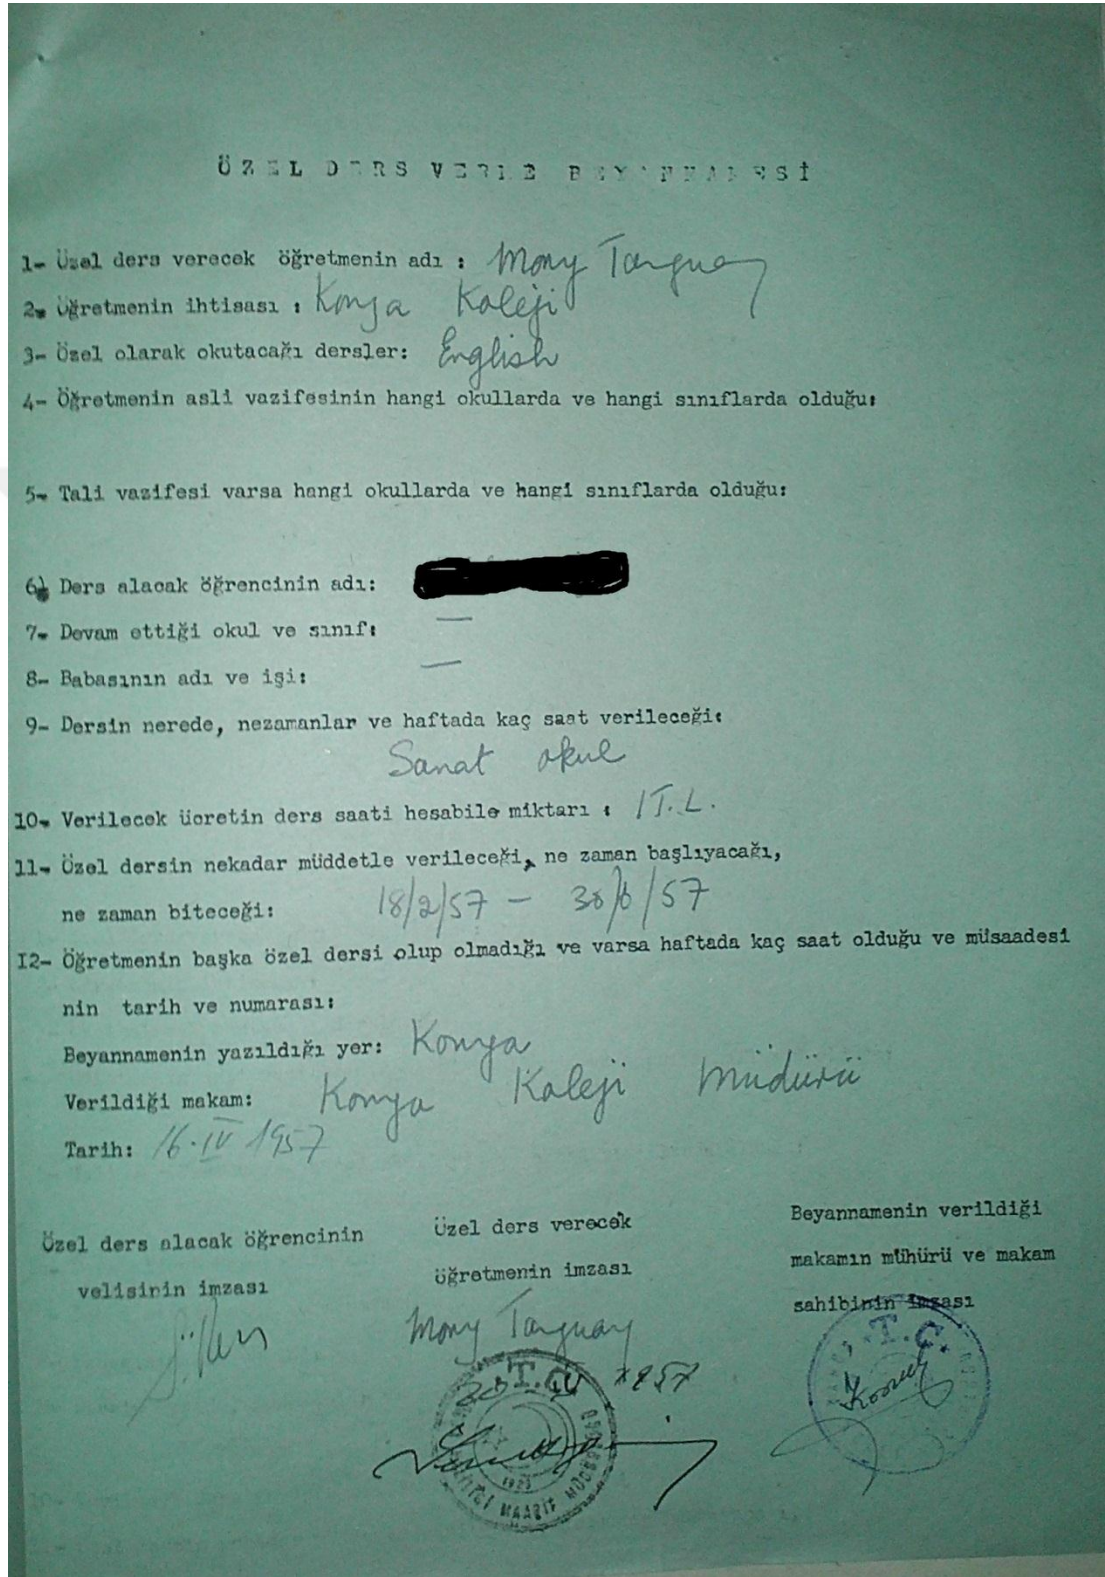 ÖZEL DERS VERME BEYANNAMESİ
1- Özel ders verecek öğretmenin adı : Mony Tanguay
2- Öğretmenin ihtisası : Konya Koleji
3- Özel olarak okutacağı dersler: English
4- Öğretmenin asli vazifesinin hangi okullarda ve hangi sınıflarda olduğu:
5- Tali vazifesi varsa hangi okullarda ve hangi sınıflarda olduğu:
6- Ders alacak öğrencinin adı:
7- Devam ettiği okul ve sınıf: —
8- Babasının adı ve işi: —
9- Dersin nerede, nezamanlar ve haftada kaç saat verileceği:
Sanat okul
10- Verilecek ücretin ders saati hesabile miktarı : 1 T.L.
11- Özel dersin nekadar müddetle verileceği, ne zaman başlıyacağı,
ne zaman biteceği: 18/2/57 — 30/6/57
I2- Öğretmenin başka özel dersi olup olmadığı ve varsa haftada kaç saat olduğu ve müsaadesi
nin tarih ve numarası:
Beyannamenin yazıldığı yer: Konya
Verildiği makam: Konya Koleji Müdürü
Tarih: 16·IV 1957
Özel ders alacak öğrencinin
velisinin imzası
Özel ders verecek
öğretmenin imzası
Mony Tanguay
Beyannamenin verildiği
makamın mühürü ve makam
sahibinin imzası
T.C.
1957
T.C.
1923
MAARİF